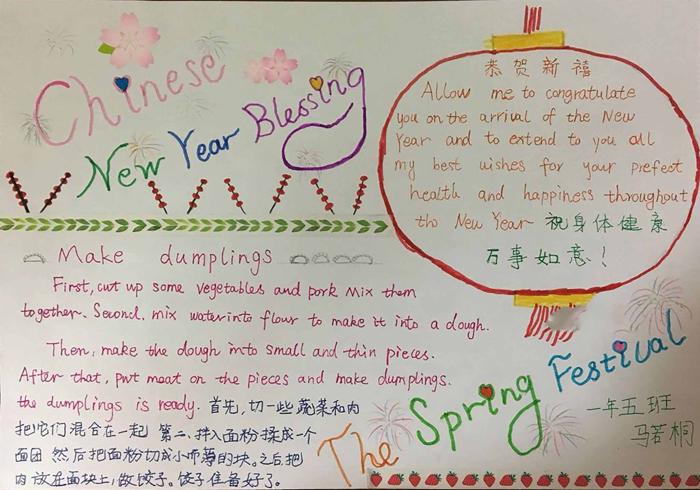 Chinese
New Year Blessing
恭贺新禧
Allow me to congratulate
you on the arrival of the New
Year and to extend to you all
my best wishes for your prefect
health and happiness throughout
the New Year 祝身体健康
万事如意!
Make dumplings
First, cut up some vegetables and pork Mix them
together. Second, mix water into flour to make it into a dough.
Then, make the dough into small and thin pieces.
After that, put meat on the pieces and make dumplings.
the dumplings is ready. 首先,切一些蔬菜和肉
把它们混合在一起 第二、拌入面粉揉成一个
面团 然后把面粉切成小而薄的块。之后把
肉放在面块上,做饺子。饺子准备好了。
The Spring Festival
一年五班
马若桐